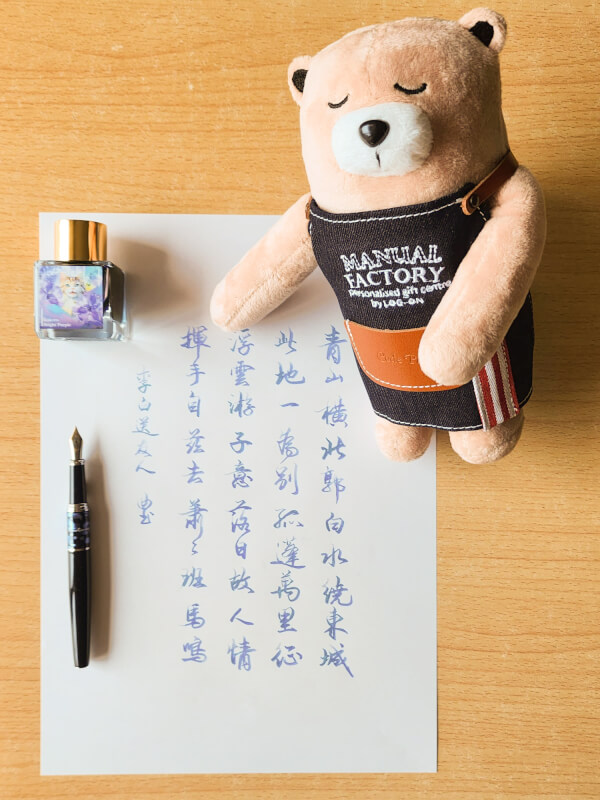 MANUAL
FACTORY
personalised gift centre
by LOG-ON
青山橫北郭白水繞東城
此地一為別孤蓬萬里征
浮雲游子意落日故人情
揮手自茲去蕭々班馬鳴
李白送友人